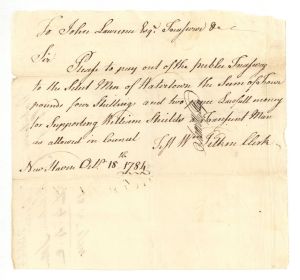 To John Lawrence Esqr. Treasurer &c
Sir
Please to pay out of the public Treasury
to the Select Men of Watertown the Sum of Four
pounds four Shillings and two pence Lawfull money
for Supporting William Shields a Transient Man
as allowed in Council
Test Wm Pitkin Clerk
New Haven Octr 18th 1784